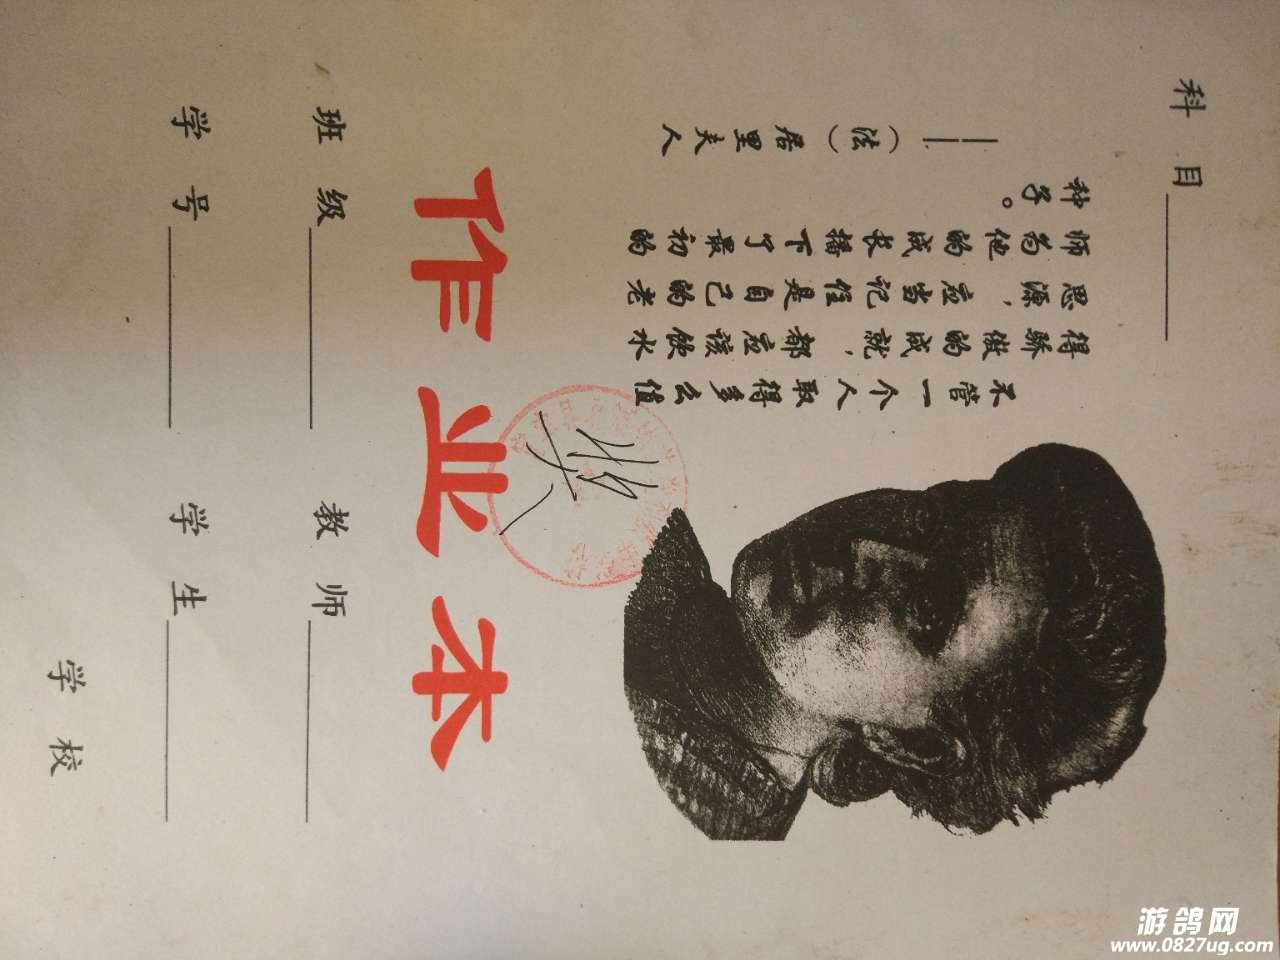 科目
不管一个人取得多么值
得骄傲的成就，都应该饮水
思源，应当记住是自己的老
师为他的成长播下了最初的
种子。
——（法）居里夫人
作业本
班级 教师
学号 学生
学校
游鸽网
www.0827ug.com